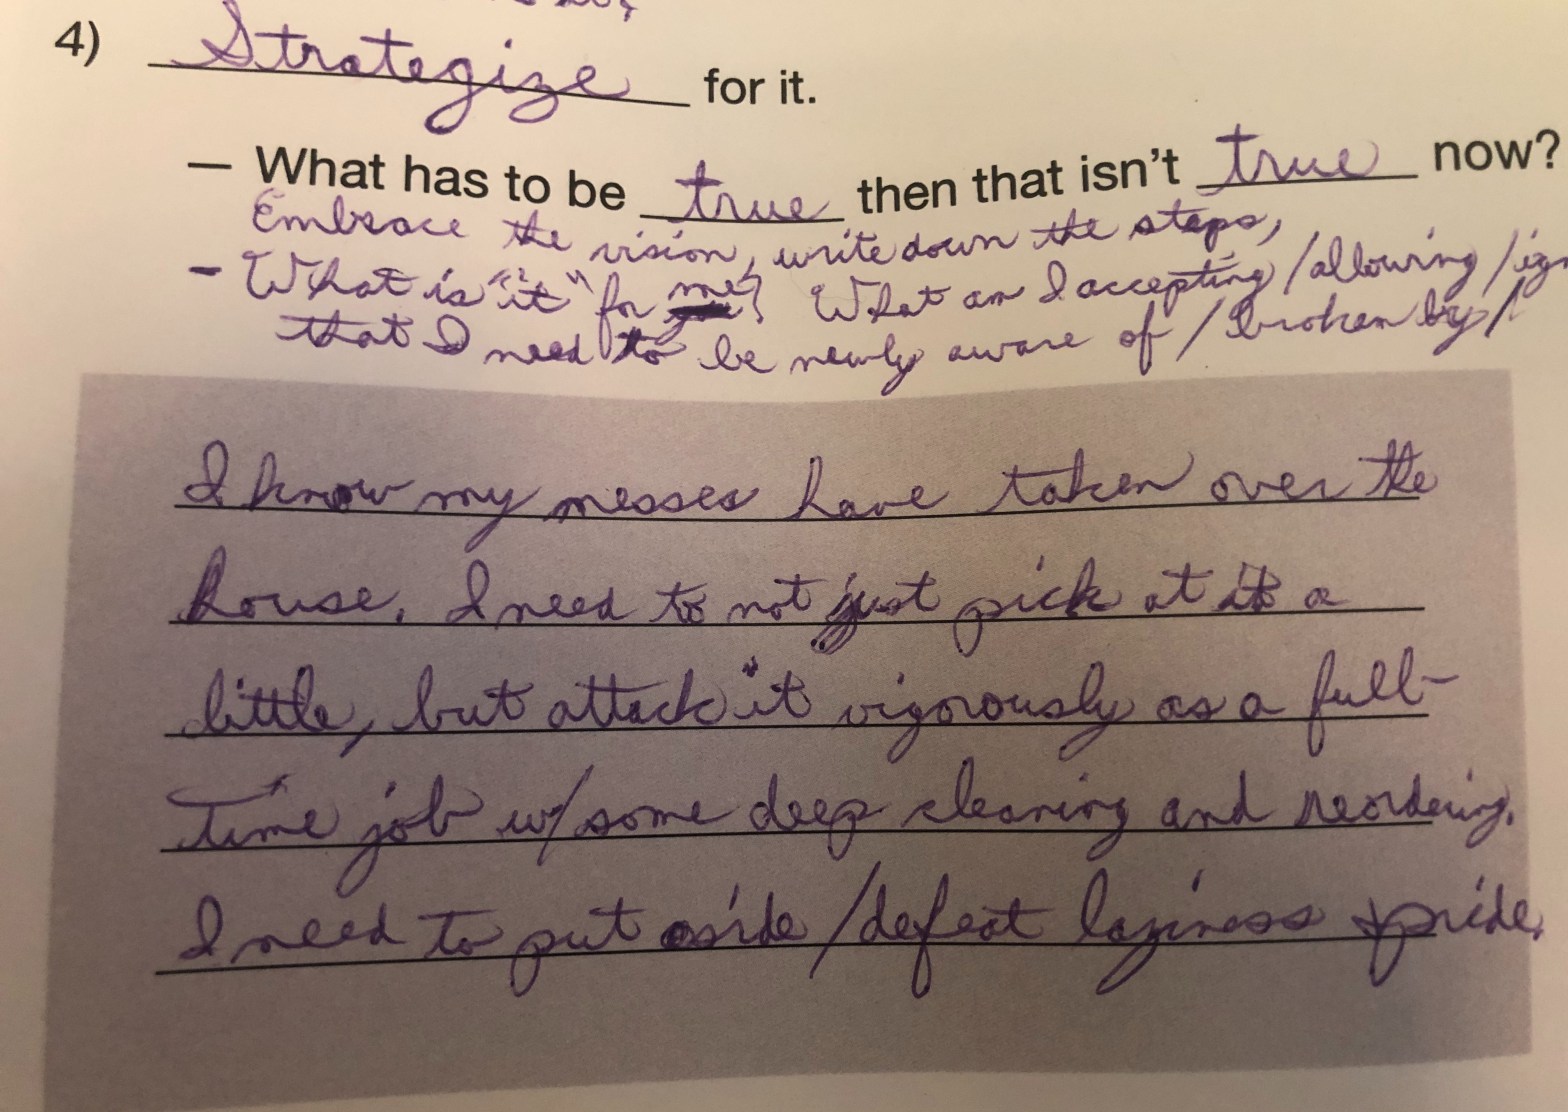 4) Strategize for it.
— What has to be true then that isn't true now?
Embrace the vision, write down the steps,
- What is "it" for me? What am I accepting/allowing/ign
that I need to be newly aware of/broken by/
I know my messes have taken over the
house. I need to not just pick at it a
little, but attack it vigorously as a full-
time job w/some deep cleaning and reordering.
I need to put aside/defeat laziness + pride.